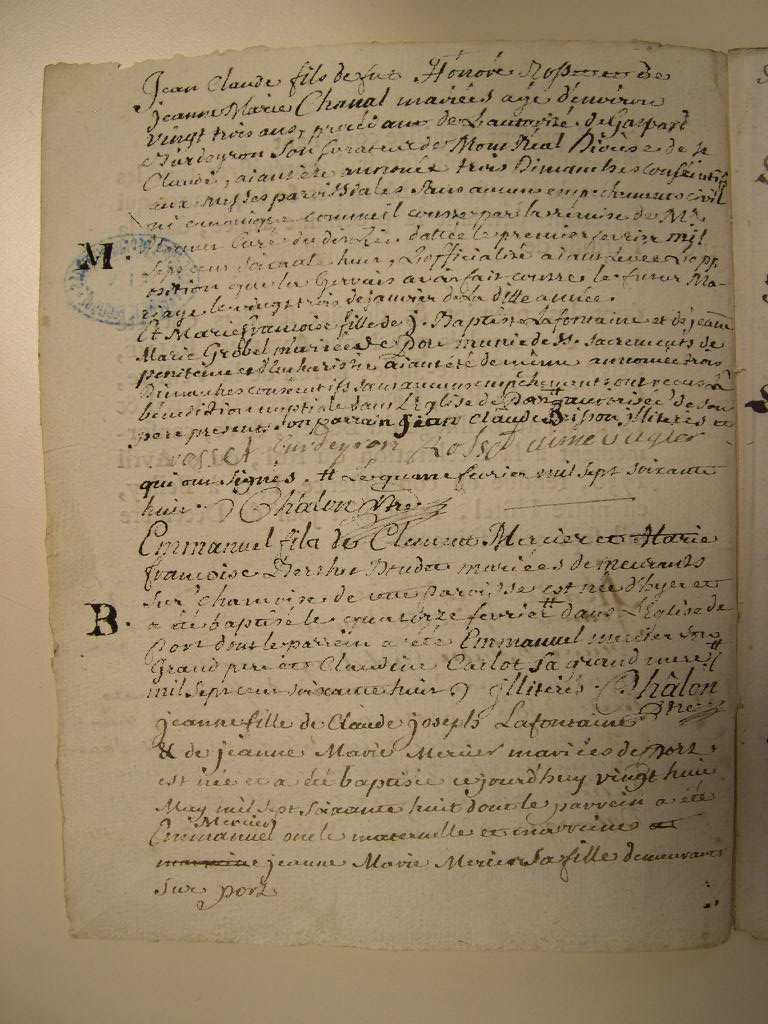 Jean Claude fils de fut Hónoré Ross de
jeanne Marie Chanal mariées agé d'environ
vingt trois ans, procédant de L'autorité de Gaspard
Gurdeyron Son Curateur de Mont Réal Diocèse de St
Claude, aiant ètè annoncé trois Dimanches conséentifs
aux messes paroissiales Sans aucun empechement civil
ni canonique comme il conste par la remise de Mr
Curé du dit Lieu dattée le premier fevrier mil
Sept cent Soixante huit, L'officialité aiant Levée L'opp
osition que la Gervais avoit fait contre le futur Ma-
riage le vingt trois de janvier de La ditte année.
M.
Et Marie françoise fille de J. Baptiste Lafontaine et de jeanne
Marie Gröbel mariées de Port munie de Ss. Sacrements de
penitence et d'Eucharistie aiant été de même annoncée trois
Dimanches consécutifs sans aucuns empéchements ont reçus la
bénédiction nuptiale dans L'Eglise de Port autorisée de son
pere present, son parrain Jean Claude illiteres et
rosset gurdeyron Rosset
qui ont signés. # Le quatre fevrier mil sept soixante
huit. Châlon ptre
Emmanuel fils de Clement Mercier et Marie
françoise Berthet Boudot mariées demeurants
Sur Chamoise de cette Paroisse est née d'hyer et
a été baptisé le quatorze fevrier # dans L'Eglise de
B.
Port dont le parrein a été Emmanuel mercier son
Grand pere et Claudine Carlot Sa grand mere #
mil Sept cent soixante huit illiterés. Châlon
ptre
jeanne fille de Claude joseph Lafontaine
& de jeanne Marie Mercier mariées de port
est née et a été baptisée cejourd'huy vingt huit
May mil sept Soixante huit dont le parrein a été
Mercier
Emmanuel oncle maternelle et marreine et
marreine jeanne Marie Mercier Sa fille demeurants
Sur port